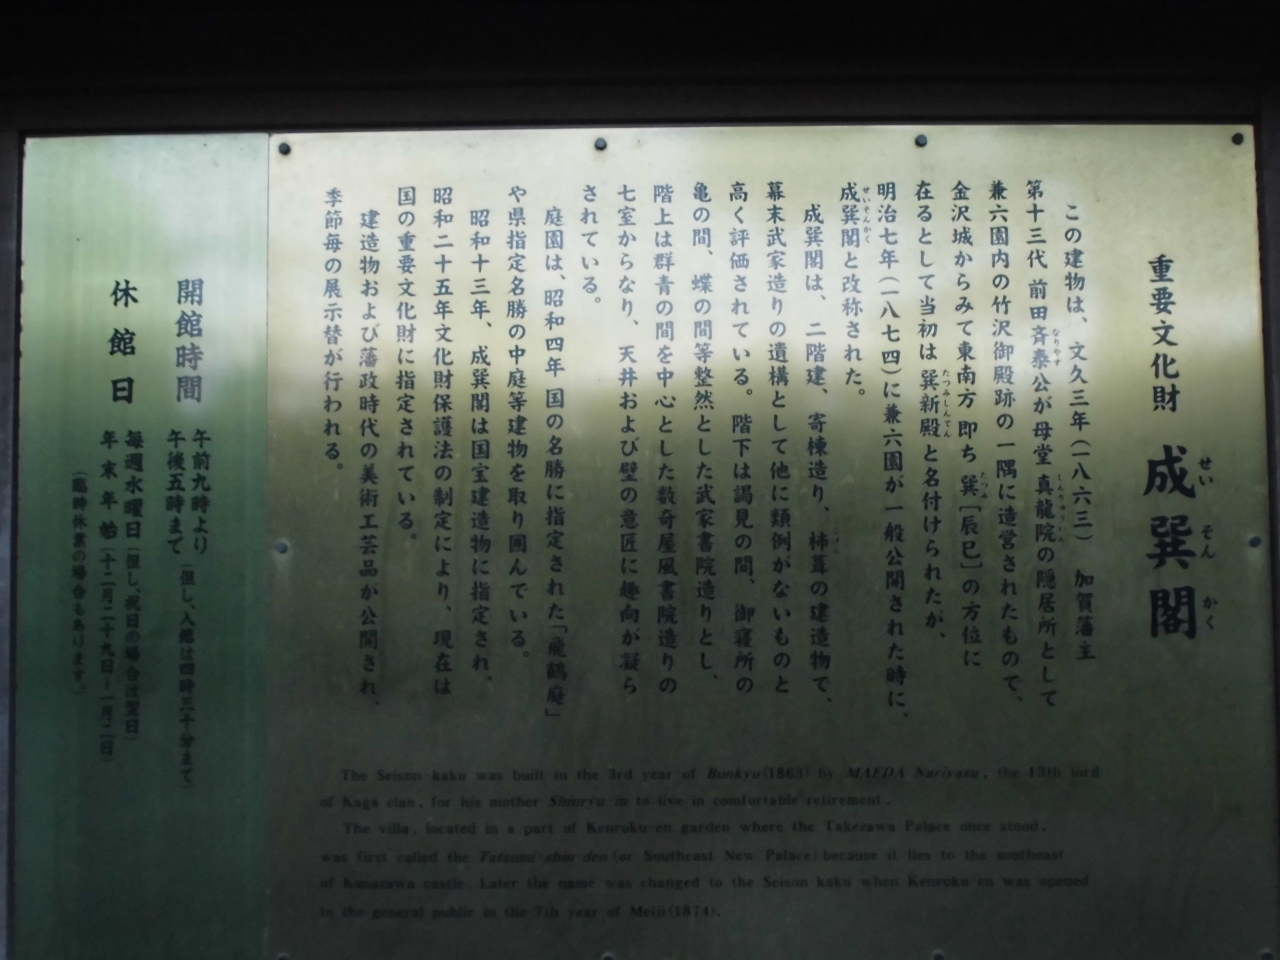 重要文化財 成巽閣
せいそんかく
この建物は、文久三年(一八六三) 加賀藩主
第十三代 前田斉泰公が母堂 真龍院の隠居所として
なりやす しんりゅういん
兼六園内の竹沢御殿跡の一隅に造営されたもので、
金沢城からみて東南方 即ち 巽[辰巳]の方位に
たつみ
在るとして当初は 巽新殿 と名付けられたが、
たつみしんでん
明治七年(一八七四)に兼六園が一般公開された時に、
成巽閣と改称された。
せいそんかく
成巽閣は、二階建、寄棟造り、杮葺の建造物で、
幕末武家造りの遺構として他に類例がないものと
高く評価されている。階下は謁見の間、御寝所の
亀の間、蝶の間等整然とした武家書院造りとし、
階上は群青の間を中心とした数奇屋風書院造りの
七室からなり、天井および壁の意匠に趣向が凝ら
されている。
庭園は、昭和四年 国の名勝に指定された「飛鶴庭」
や県指定名勝の中庭等建物を取り囲んでいる。
昭和十三年、成巽閣は国宝建造物に指定され、
昭和二十五年文化財保護法の制定により、現在は
国の重要文化財に指定されている。
建造物および藩政時代の美術工芸品が公開され、
季節毎の展示替が行われる。
The Seison-kaku was built in the 3rd year of Bunkyu(1863) by MAEDA Nariyasu, the 13th lord
of Kaga clan, for his mother Shinryu-in to live in comfortable retirement.
The villa, located in a part of Kenroku-en garden where the Takezawa Palace once stood,
was first called the Tatsumi-shin-den(or Southeast New Palace) because it lies to the southeast
of Kanazawa castle. Later the name was changed to the Seison-kaku when Kenroku-en was opened
to the general public in the 7th year of Meiji(1874).
開館時間 午前九時より
午後五時まで(但し、入館は四時三十分まで)
休館日 毎週水曜日(但し、祝日の場合は翌日)
年末年始(十二月二十九日〜一月二日)
(臨時休業の場合もあります。)